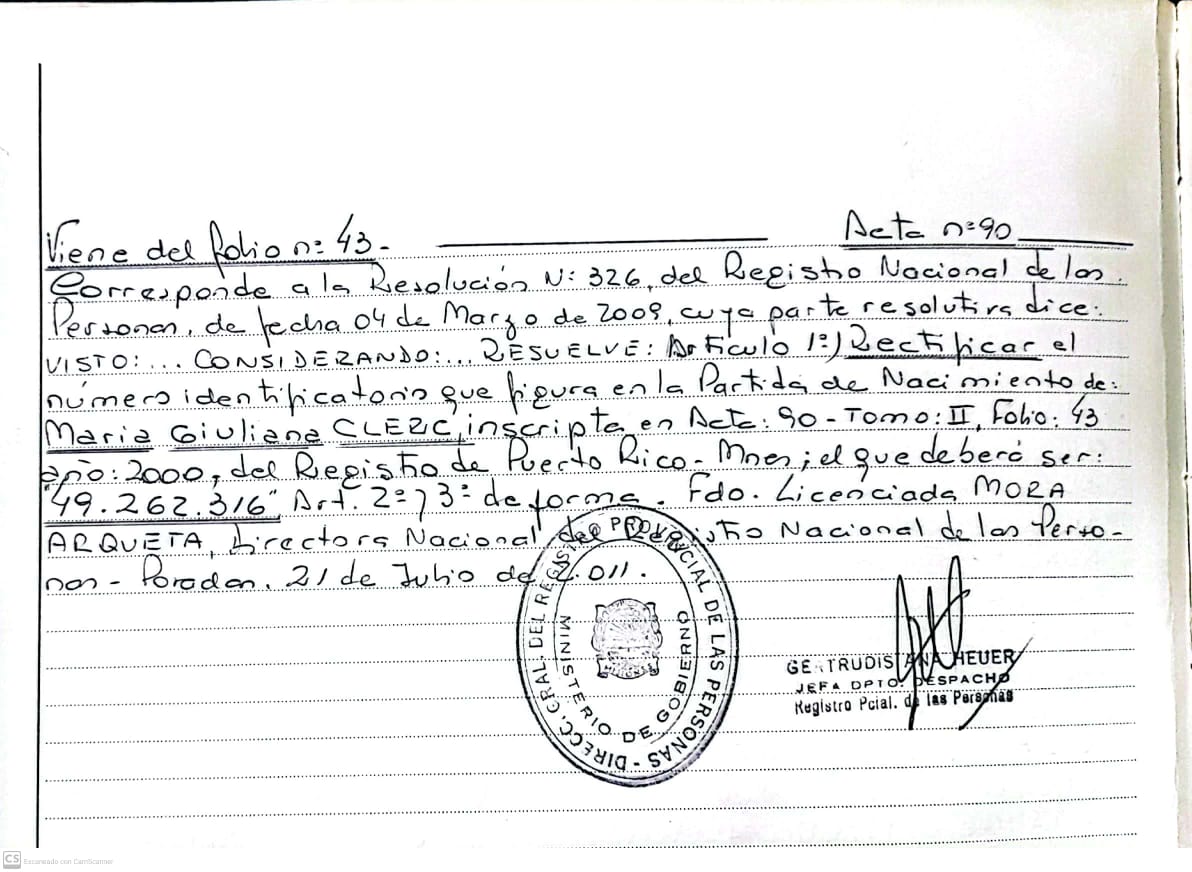 Viene del folio n: 43.- Acta n: 90
Corresponde a la Resolución N: 326, del Registro Nacional de las
Personas, de fecha 04 de Marzo de 2009, cuya parte resolutiva dice:
VISTO: ... CONSIDERANDO: ... RESUELVE: Artículo 1º) Rectificar el
número identificatorio que figura en la Partida de Nacimiento de:
Maria Giuliana CLERC, inscripta en Acta: 90 - TOMO: II, Folio: 43
año: 2000, del Registro de Puerto Rico - Mnes; el que deberá ser:
"49.262.316" Art. 2º y 3º de forma. Fdo. Licenciada MORA
ARQUETA, Directora Nacional del Registro Nacional de las Perso-
nas - Posadas, 21 de Julio de 2.011.
DIRECC. GRAL. DEL REGISTRO PROVINCIAL DE LAS PERSONAS -
MINISTERIO DE GOBIERNO
GERTRUDIS ANA HEUER
JEFA DPTO. DESPACHO
Registro Pcial. de las Personas
CS Escaneado con CamScanner